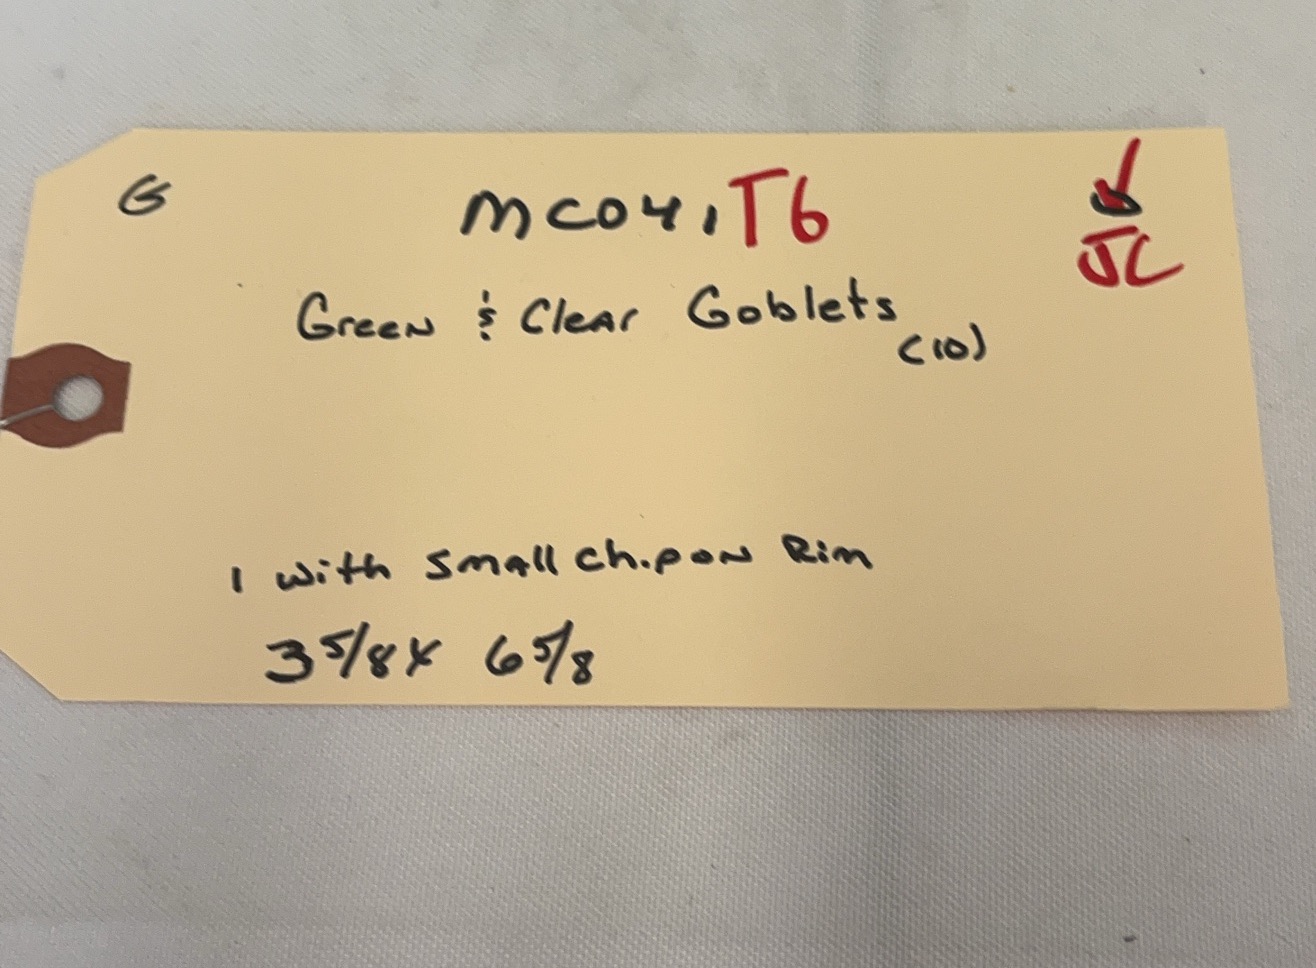 G
MC041 T6
JC
Green & Clear Goblets
(10)
1 with small chip on Rim
3 5/8 x 6 5/8